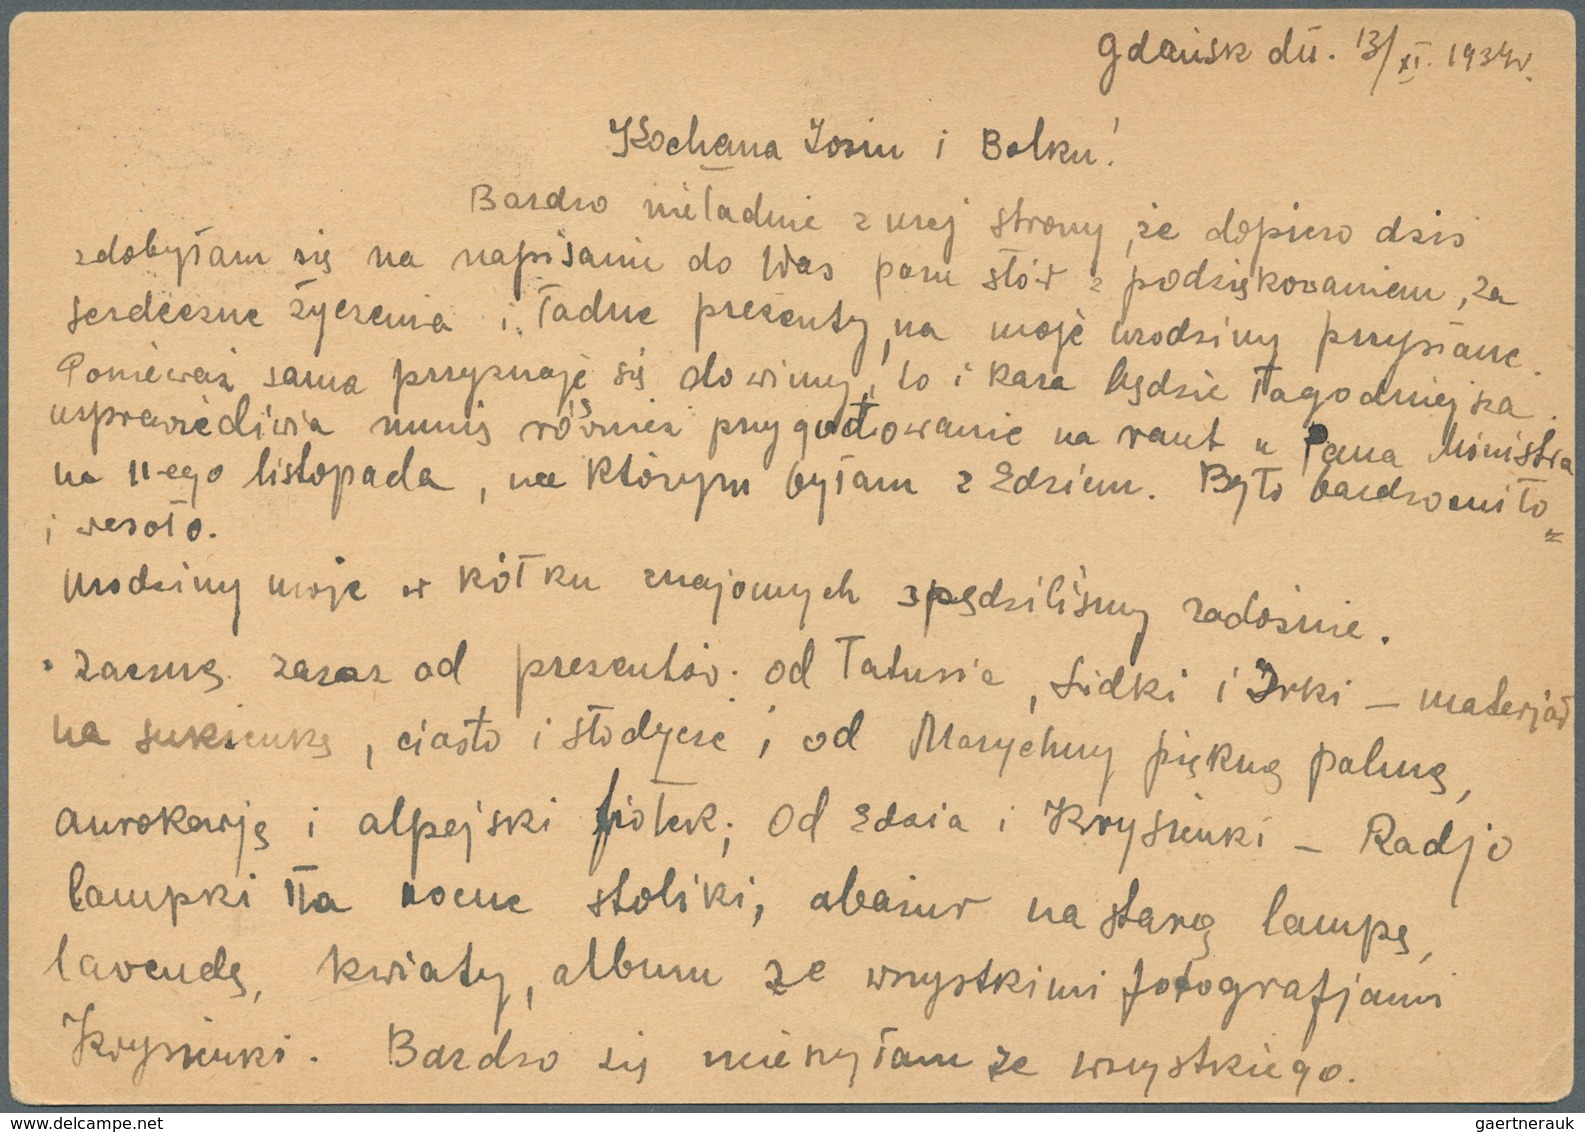 Gdańsk dn. 13/XI. 1934r.
Kochana Zosiu i Bolku!
Bardzo nieładnie z mej strony, że dopiero dziś
zdobyłam się na napisanie do Was paru słów z podziękowaniem, za
serdeczne życzenia i ładne prezenty, na moje urodziny przysłane.
Ponieważ sama przyznaję się do winy, to i kara będzie łagodniejsza.
usprawiedliwia mnie również przygotowanie na raut u Pana Ministra
na 11-ego listopada, na którym byłam z Edziem. Było bardzo miło
i wesoło.
Urodziny moje w kółku znajomych spędziliśmy radośnie.
Zacznę zaraz od prezentów. od Tatusia, Lidki i Irki — materjał
na sukienkę, ciasto i słodycze; od Marychny piękną palmę,
aurokarję i alpejski fiołek; Od Edzia i Krysieńki — Radjo
lampki na nocne stoliki, abażur na starą lampę,
lavendę, kwiaty, album ze wszystkimi fotografjami
Krysieńki. Bardzo się cieszyłam ze wszystkiego.
www.delcampe.net
gaertnerauk